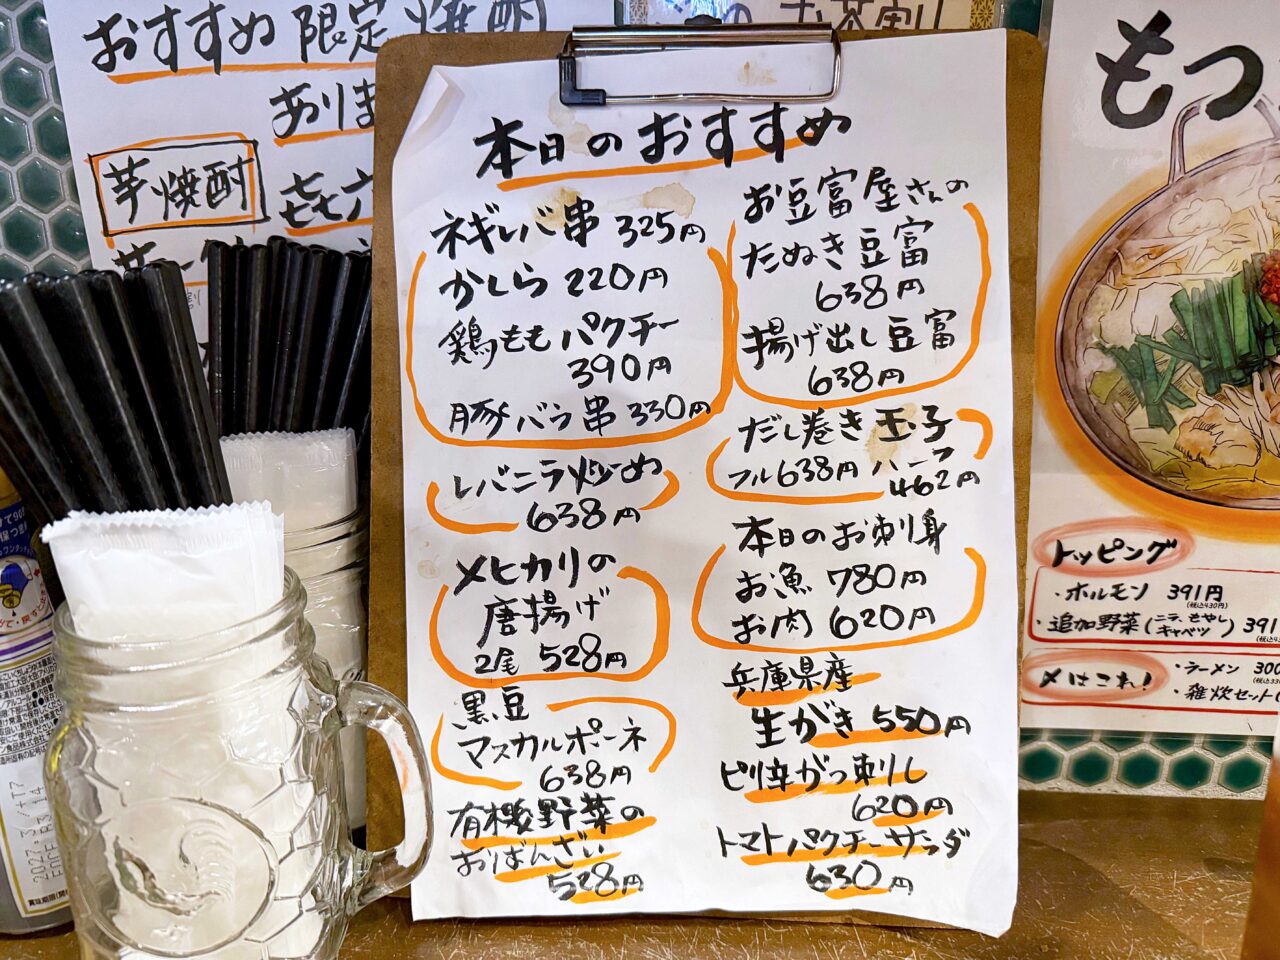 おすすめ 限定 焼酎
ありま
芋焼酎
七七六
本日のおすすめ
ネギレバ串 325円
かしら 220円
鶏もも パクチー
390円
豚バラ串 330円
レバニラ炒め
638円
メヒカリの
唐揚げ
2尾 528円
黒豆
マスカルポーネ
638円
有機野菜の
おばんざい
528円
お豆富屋さんの
たぬき豆富
638円
揚げ出し豆富
638円
だし巻き玉子
フル638円 ハーフ
462円
本日のお刺身
お魚 780円
お肉 620円
兵庫県産
生がき 550円
ピリ辛がっ刺し
620円
トマトパクチーサラダ
630円
もつ
トッピング
・ホルモン 391円
(税込430円)
・追加野菜(ニラ、もやし
キャベツ) 391
〆はこれ!
・ラーメン 300
・雑炊セット
2027.3